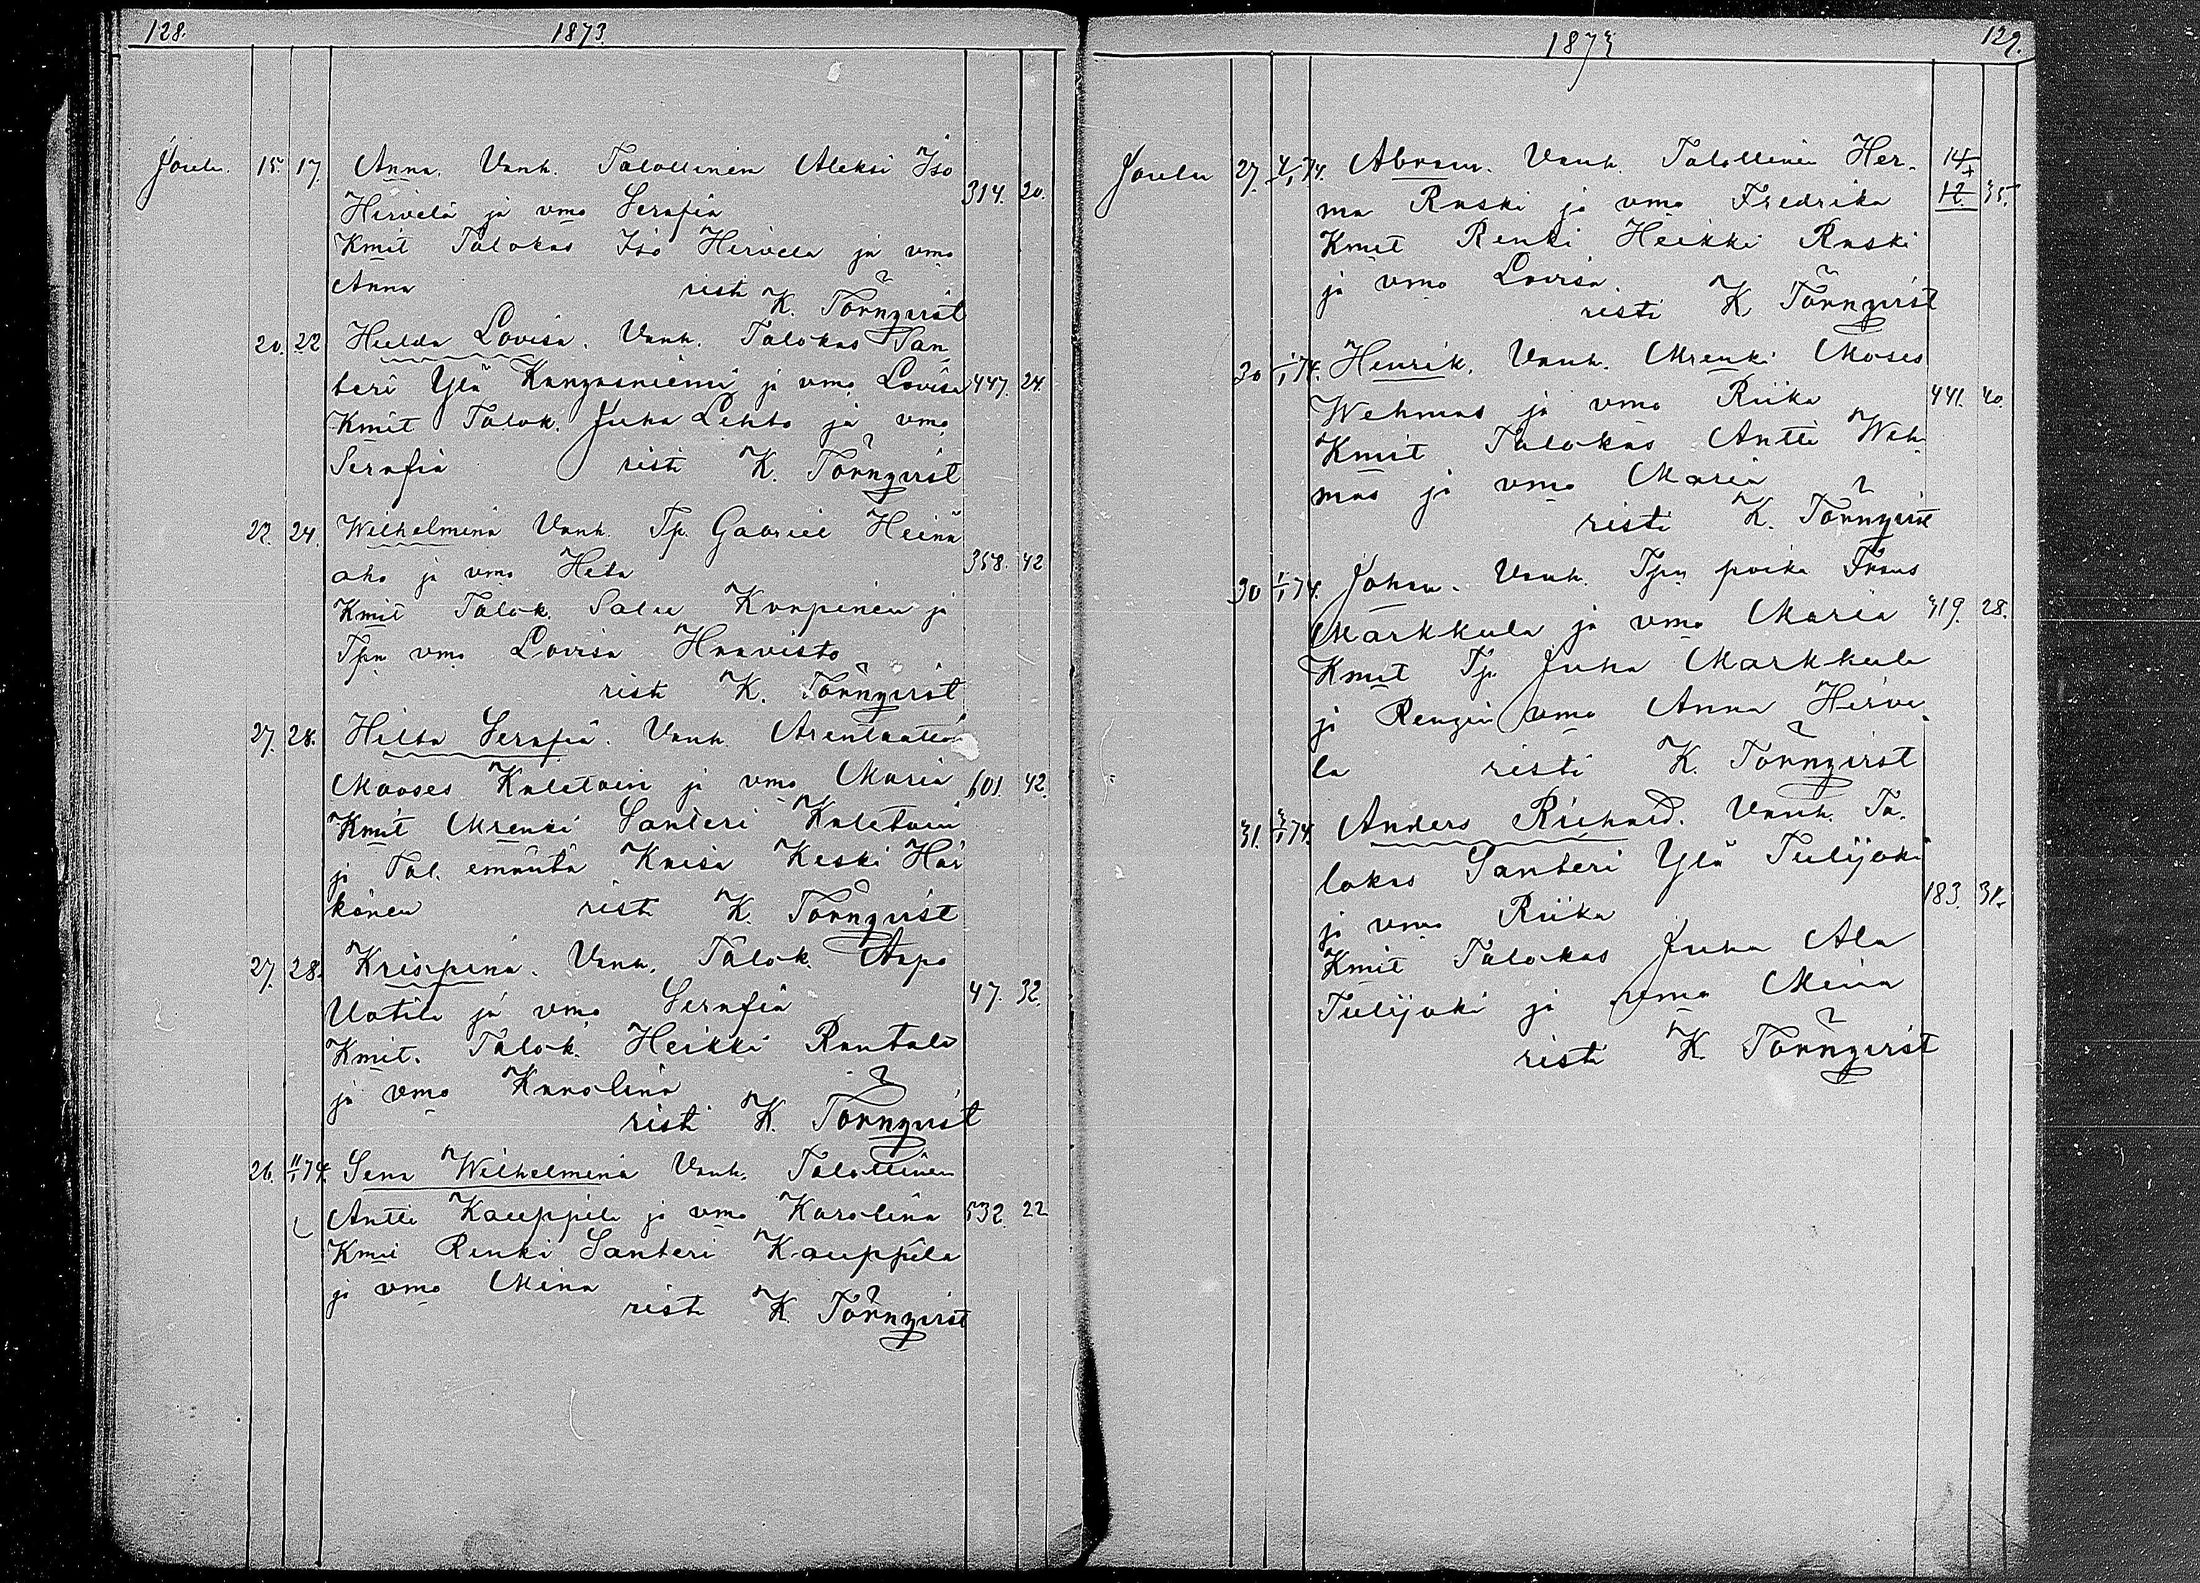 128. 1873.
Joulu. 15. 17. Anna. Vanh. Talollinen Aleksi Iso
Hirvelä ja vmo Serafia 314. 20.
Kmit Talokas Iso Hirvela ja vmo
Anna risti K. Törnqvist
20. 22 Hulda Lovisa. Vanh. Talokas San
teri Ylä Kangasniemi ja vmo Lovisa 447. 24.
Kmit Talok. Juha Lehto ja vmo
Serafia risti K. Törnqvist
22. 24. Wilhelmina Vanh. Tp. Gabriel Heinä
aho ja vmo Heta 358. 42
Kmit Talok. Salu Karpinen ja
Tpn vmo Lovisa Haavisto
risti K. Törnqvist
27. 28. Hilta Serafia. Vanh. Arentaatin
Mooses Kaletoin ja vmo Maria 601. 42.
Kmit Mrenki Santeri Kaletoin
ja Tal. emäntä Kaisa Keski Här
könen risti K. Törnqvist
27. 28. Krispina. Vanh. Talok. Aapo
Uotila ja vmo Serafia 47. 32.
Kmit. Talok. Heikki Rantala
ja vmo Karolina
risti K. Törnqvist
26. 11/1 74. Sena Wilhelmina Vanh. Talollinen
Antti Kauppila ja vmo Karolina 532. 22
Kmit Renki Santeri Kauppila
ja vmo Mina
risti K. Törnqvist
1873 129.
Joulu 27. 4/1 74. Abram. Vanh. Talollinen Her- 14
ma Raski ja vmo Fredrika 12. 35.
Kmit Renki Heikki Raski
ja vmo Lovisa.
risti K Törnqvist
30 1/1 74. Henrik. Vanh. Mrenki Moses
Wehmas ja vmo Riika 441. 40.
Kmit Talokas Antti Weh
mas ja vmo Maria
risti K. Törnqvist
30 1/1 74. Johan. Vanh. Tpn poika Frans
Markkula ja vmo Maria 419. 28.
Kmit Tp. Juha Markkula
ja Rengin vmo Anna Hirve
la risti K. Törnqvist
31. 3/1 74. Anders Richard. Vanh. Ta-
lokas Santeri Ylä Tulijoki
ja vmo Riika 183. 31.
Kmit Talokas Juha Ala
Tulijoki ja vmo Miina
risti K. Törnqvist